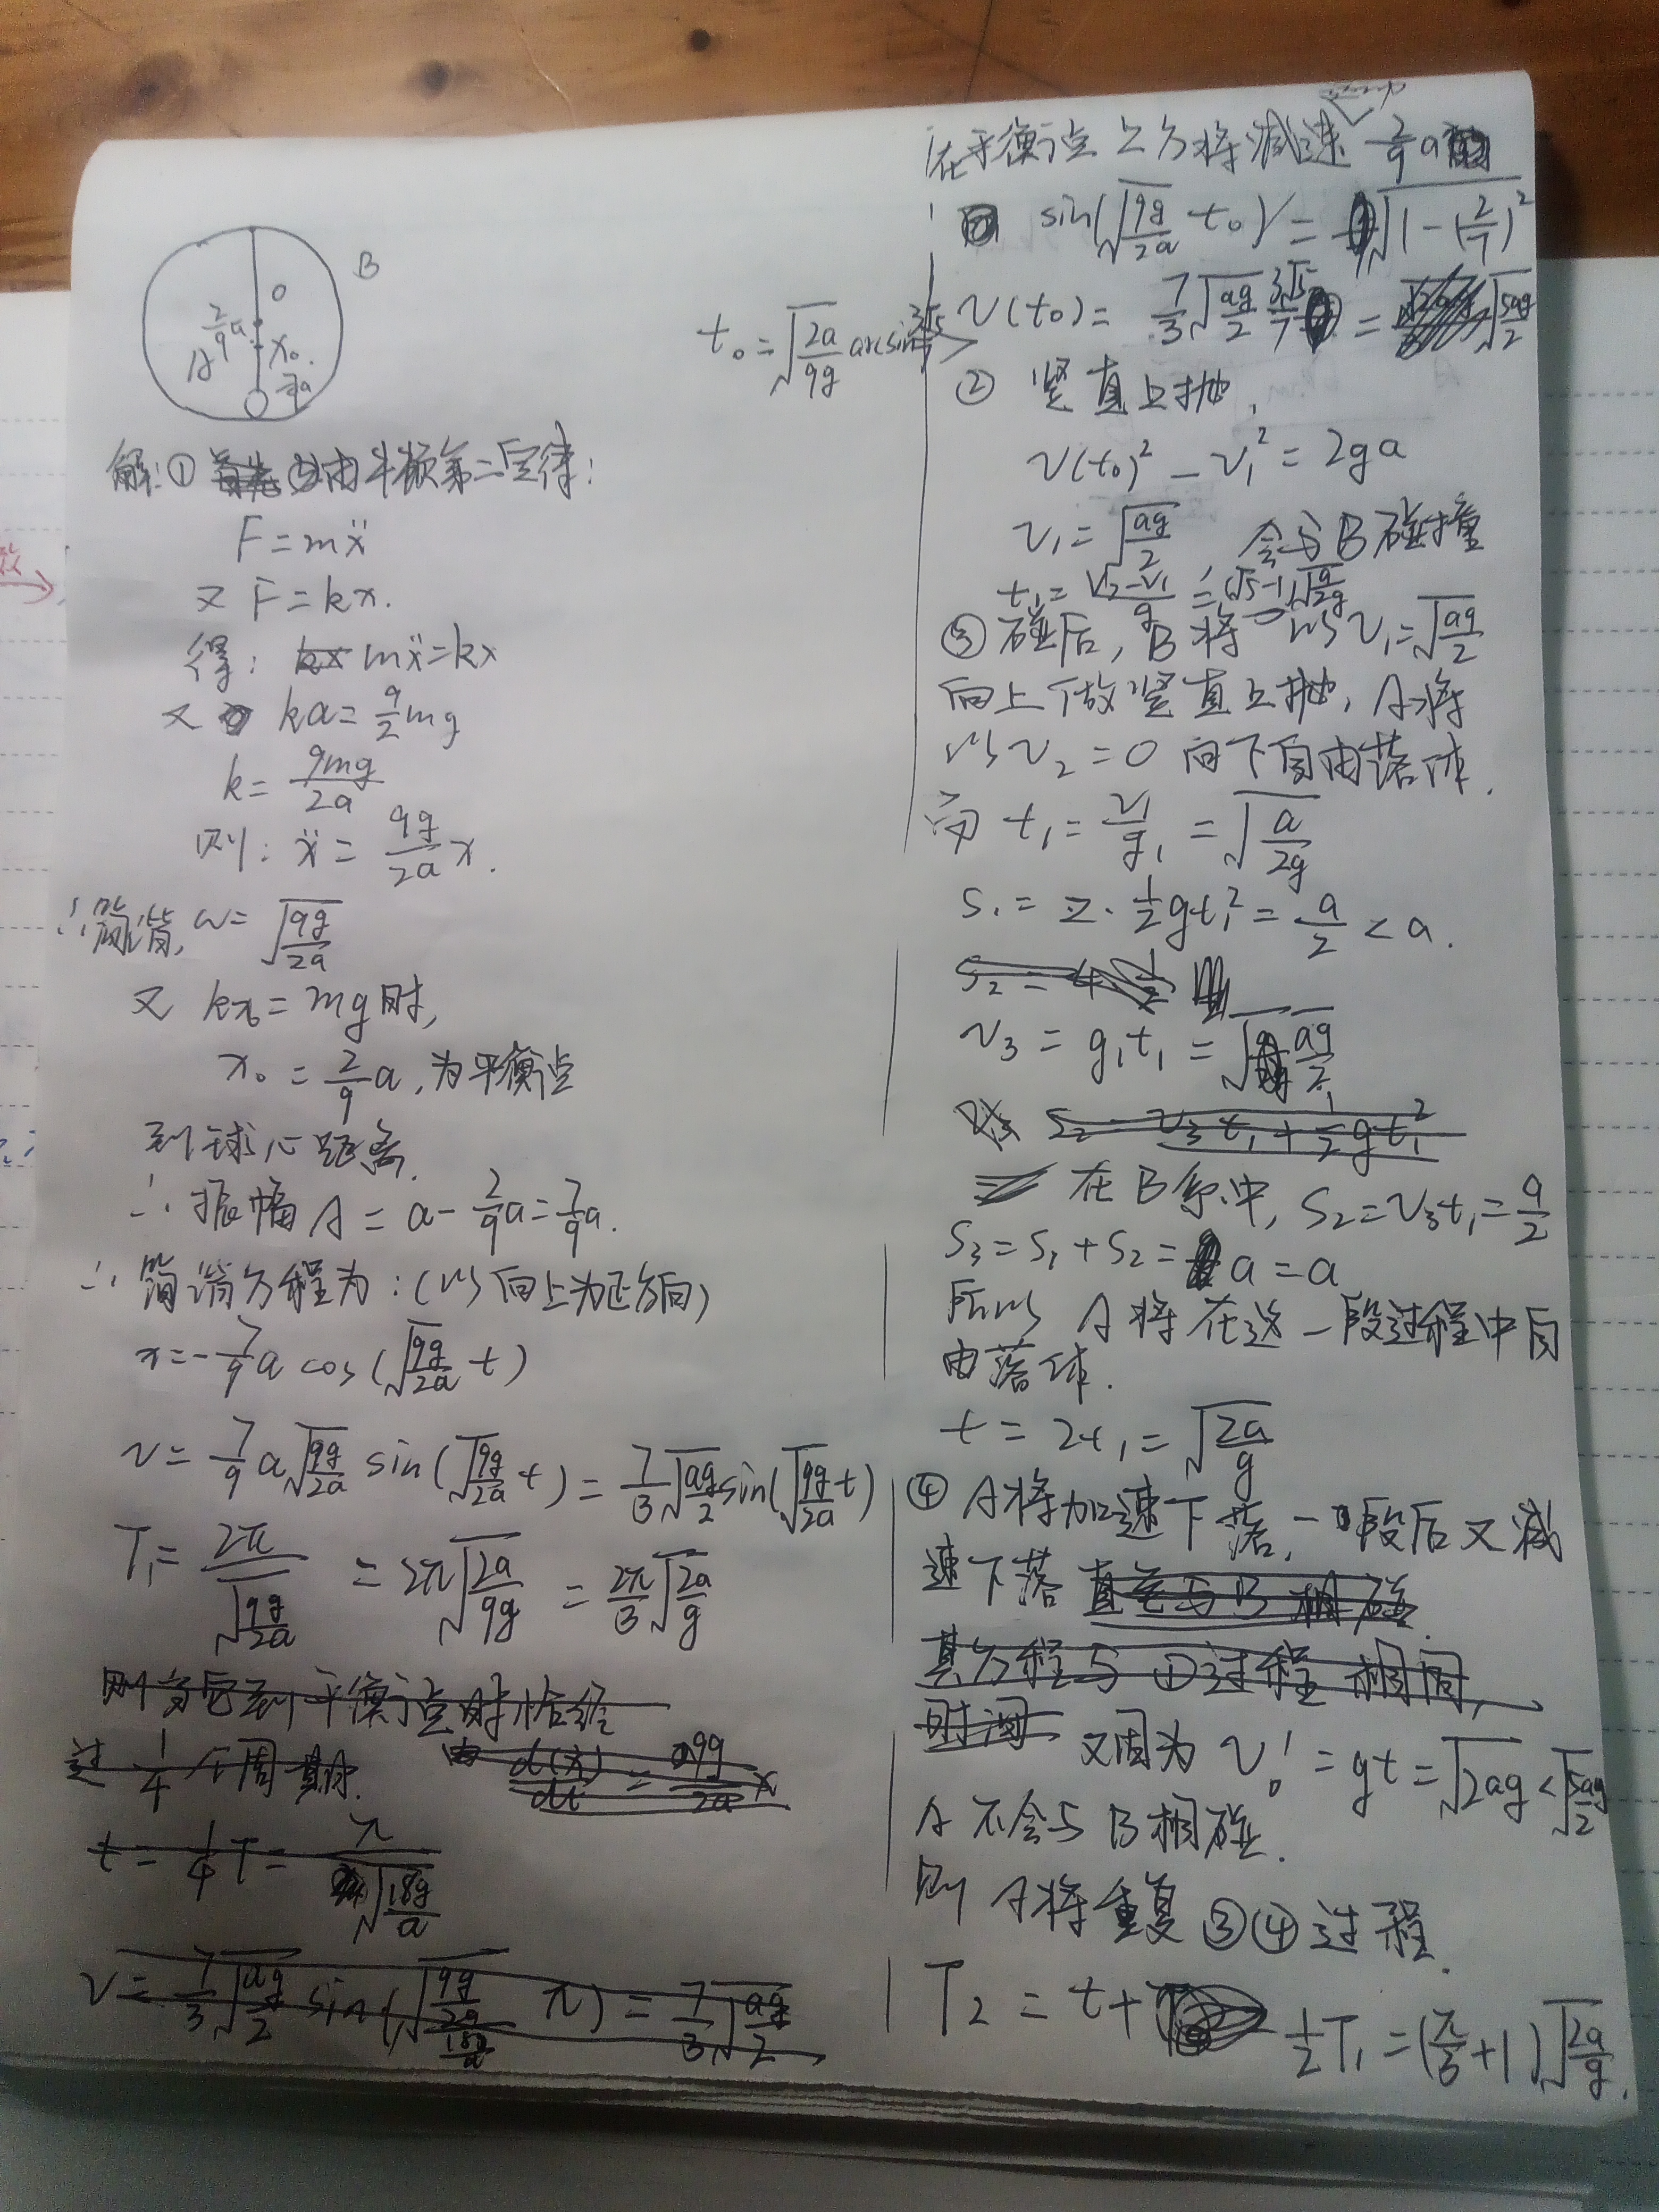 B
O
2/9 a
A
x₀
7/9 a
解:① 由牛顿第二定律:
F=mẍ
又 F=kx.
得: mẍ=kx
又 ka=9/2 mg
k=9mg/2a
则: ẍ=9g/2a x.
∴简谐, ω=√(9g/2a)
又 kx₀=mg时,
x₀=2/9 a,为平衡点
到球心距离.
∴振幅 A=a-2/9 a=7/9 a.
∴简谐方程为:(以向上为正方向)
x=-7/9 a cos(√(9g/2a) t)
v=7/9 a√(9g/2a) sin(√(9g/2a) t)=7/3 √(ag/2) sin(√(9g/2a) t)
T₁=2π/√(9g/2a)=2π√(2a/9g)=2π/3 √(2a/g)
则当它到平衡点时恰经
过 1/4 个周期.
t=1/4 T=π/√(18g/a)
在平衡点上方将减速 2/9 a
sin(√(9g/2a) t₀)=√(1-(2/7)²)
t₀=√(2a/9g) arcsin 3√5/7
v(t₀)=7/3 √(ag/2) 3√5/7=√(5ag/2)
② 竖直上抛,
v(t₀)²-v₁²=2ga
v₁=√(ag/2), 会与B碰撞
③碰后, B将以v₁=√(ag/2)
向上做竖直上抛, A将
以v₂=0 向下自由落体.
而 t₁=v₁/g₁=√(a/2g)
s₁=2·1/2 gt₁²=a/2<a.
v₃=g₁t₁=√(ag/2)
在B系中, s₂=v₃t₁=a/2
s₃=s₁+s₂=a=a
所以 A将在这一段过程中自
由落体.
t=2t₁=√(2a/g)
④ A将加速下落,一段后又减
速下落 直至与B相碰.
其方程与①过程相同,
时间 又因为 v₀'=gt=√(2ag)<√(5ag/2)
A不会与B相碰.
则 A将重复③④过程.
T₂=t+1/2 T₁=(π/3+1)√(2a/g).